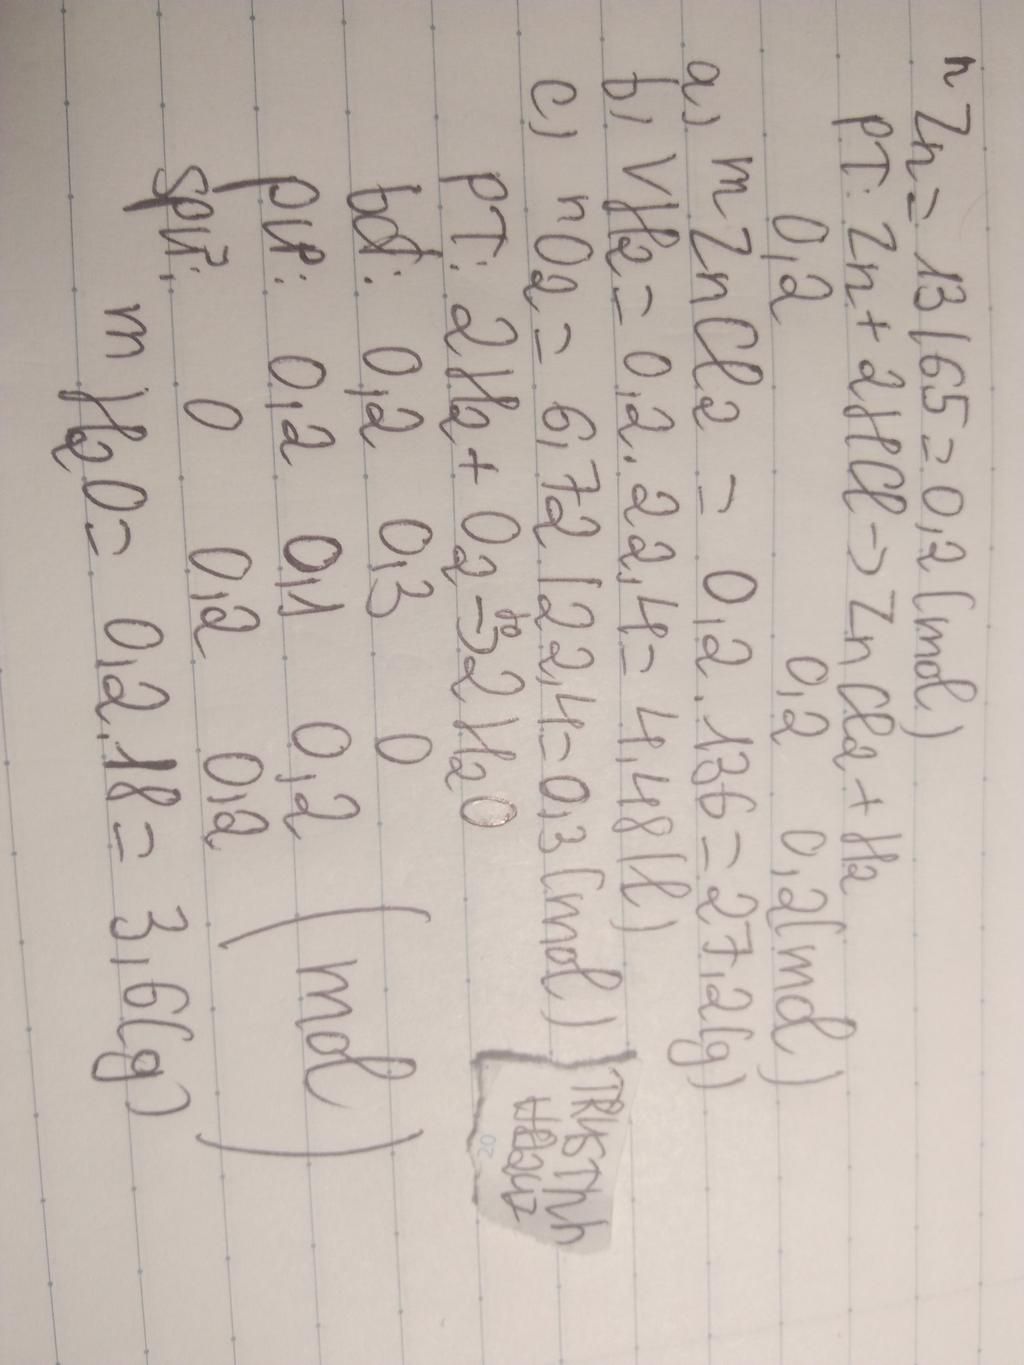 nZn = 13/65 = 0,2 (mol)
PT: Zn + 2HCl → ZnCl2 + H2
0,2 0,2 0,2 (mol)
a) mZnCl2 = 0,2.136 = 27,2(g)
b) VH2 = 0,2.22,4 = 4,48(l)
c) nO2 = 6,72/22,4 = 0,3 (mol)
PT: 2H2 + O2 →to 2H2O
bđ: 0,2 0,3 0
pư: 0,2 0,1 0,2 (mol)
spư: 0 0,2 0,2
mH2O = 0,2.18 = 3,6(g)